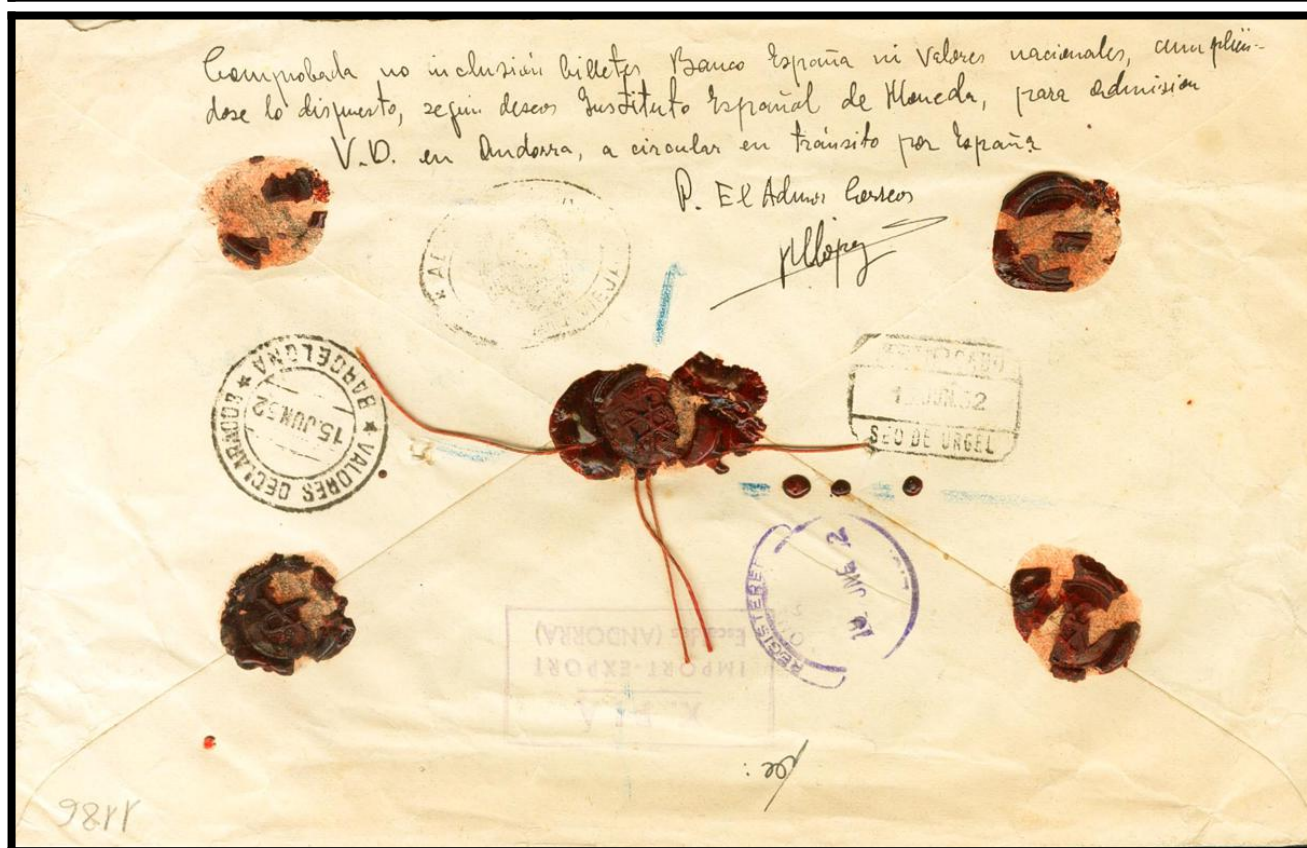 Comprobada no inclusión billetes Banco España ni valores nacionales, cumplién-
dose lo dispuesto, según deseos Instituto Español de Moneda, para admisión
V.D. en Andorra, a circular en tránsito por España
P. El Admor Correos
MLópez
★ BARCELONA ★ VALORES DECLARADOS
15.JUN.52
CERTIFICADO
JUN.52
SEO DE URGEL
REGISTERED
X. PLA
IMPORT-EXPORT
Escaldes (ANDORRA)